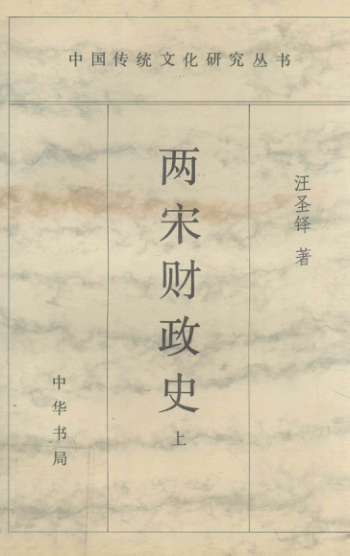 中国传统文化研究丛书
汪圣铎 著
两宋财政史 上
中华书局